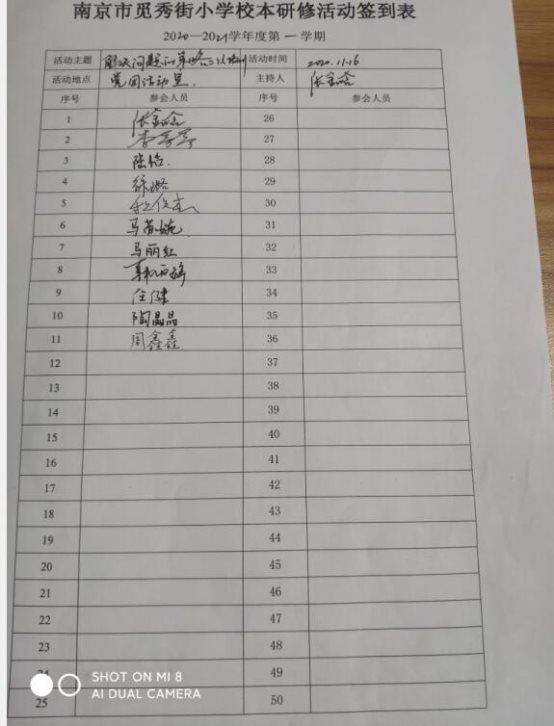 南京市觅秀街小学校本研修活动签到表
2020—2021学年度第一学期
活动主题 解决问题的策略 培训 活动时间 2020.11.16
活动地点 党团活动室. 主持人
序号 参会人员 序号 参会人员
1 26
2 27
3 陈怡. 28
4 徐璐 29
5 30
6 马苏婉 31
7 马丽红 32
8 33
9 任健 34
10 陶晶晶 35
11 周鑫鑫 36
12 37
13 38
14 39
15 40
16 41
17 42
18 43
19 44
20 45
21 46
22 47
23 48
24 49
25 50
SHOT ON MI 8
AI DUAL CAMERA